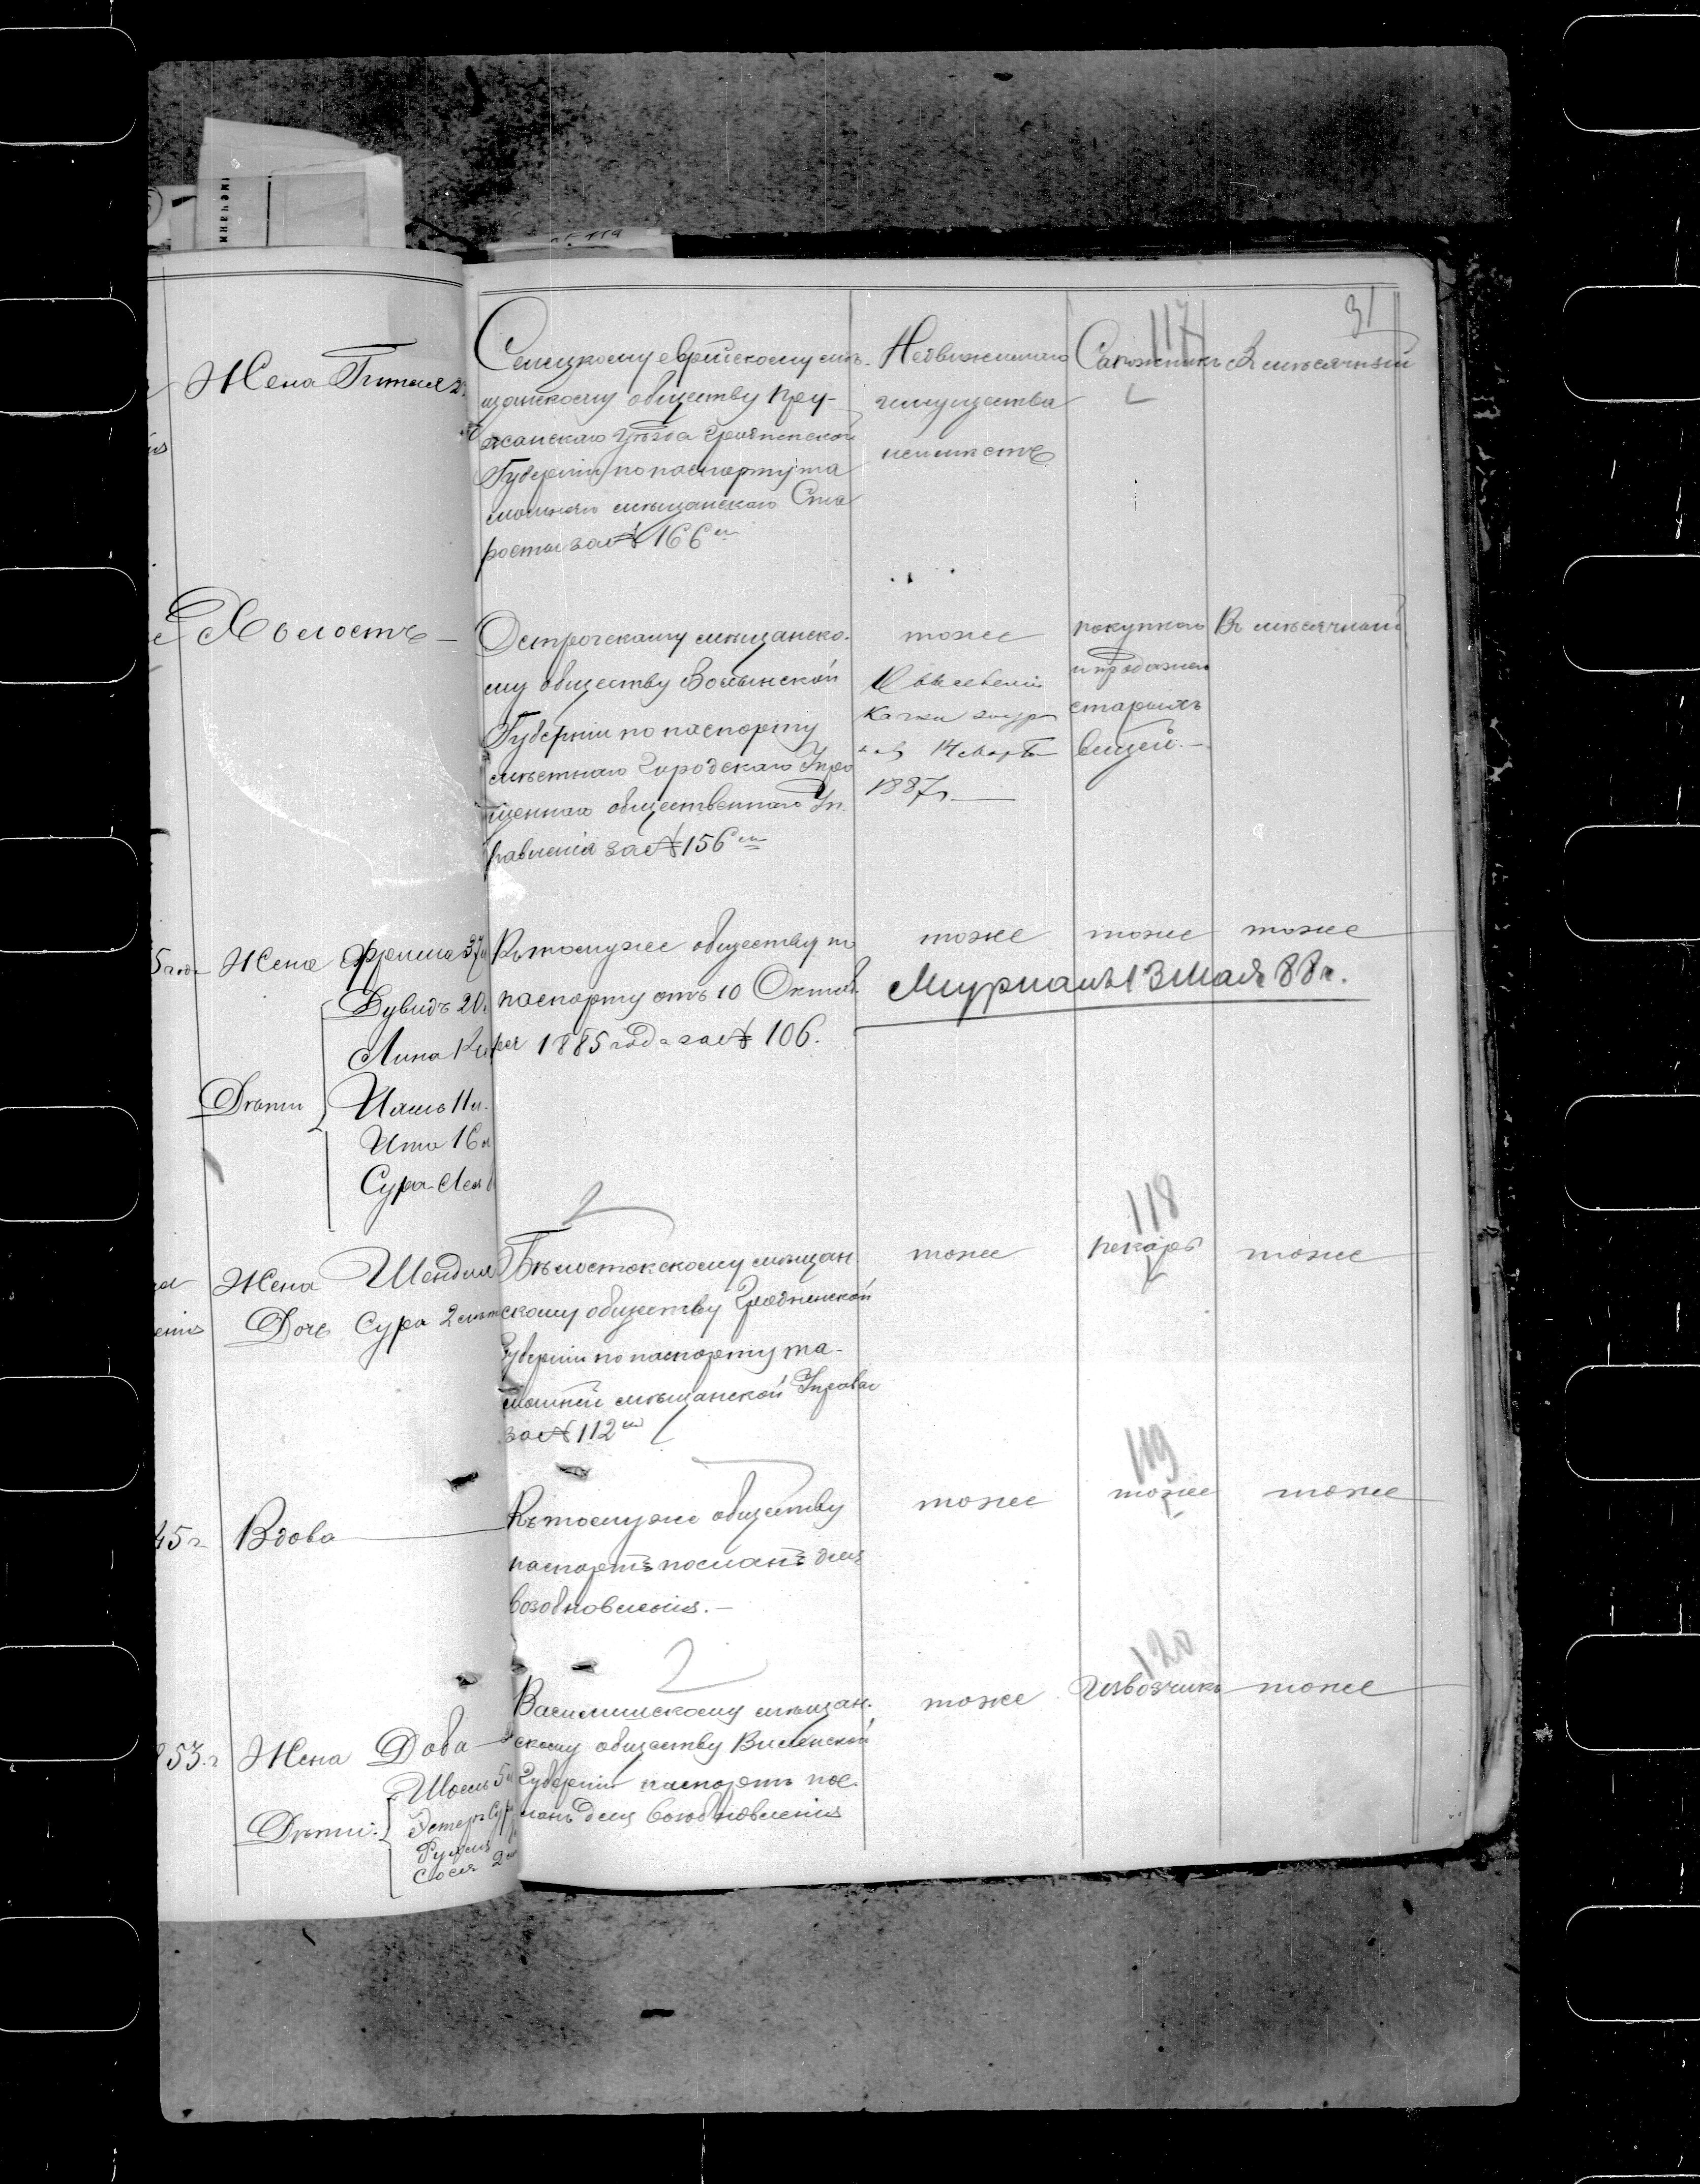 31
117
Жена Гитля
Селецкому еврейскому мѣ-
щанскому обществу Пру-
жанскаго Уѣзда Гродненской
Губерніи по паспорту та
мошняго мѣщанскаго Ста
росты за № 166 м
Недвижимаго
имущества
неимѣетъ
Сапожникъ
В мѣсячный
Холостъ —
Острогскому мѣщанско-
му обществу Волынской
Губерніи по паспорту
мѣстнаго Городскаго Упро
щеннаго общественнаго Уп
равленія за № 156 м
тоже
14 Марта
1887 г —
покупкою
и продажею
старыхъ
вещей. —
Въ мѣсячный
Жена Фрейма 37
Дувидъ 20
Лина
Дѣти
11 л.
Ита 16 л
Сура-Лея
Къ томуже обществу по
паспорту отъ 10 Октяб
ря 1885 года за № 106.
тоже тоже тоже
13 Мая 88 г.
118
Жена Шендля
Дочь Сура 2 лѣт
Бѣлостокскому мѣщан
скому обществу Гродненской
Губерніи по паспорту та-
мошней мѣщанской Управы
за № 112 м
тоже пекарь тоже
119
45 г Вдова
Къ томуже обществу
паспортъ посланъ для
возобновленія. —
тоже тоже тоже
120
853 г Жена Доба
Дѣти:
Шоель 5 л
Эстеръ Сура
Сося 2
Василишскому мѣщан-
скому обществу Виленской
Губерніи паспортъ пос-
ланъ для возобновленія
тоже извозчикъ тоже